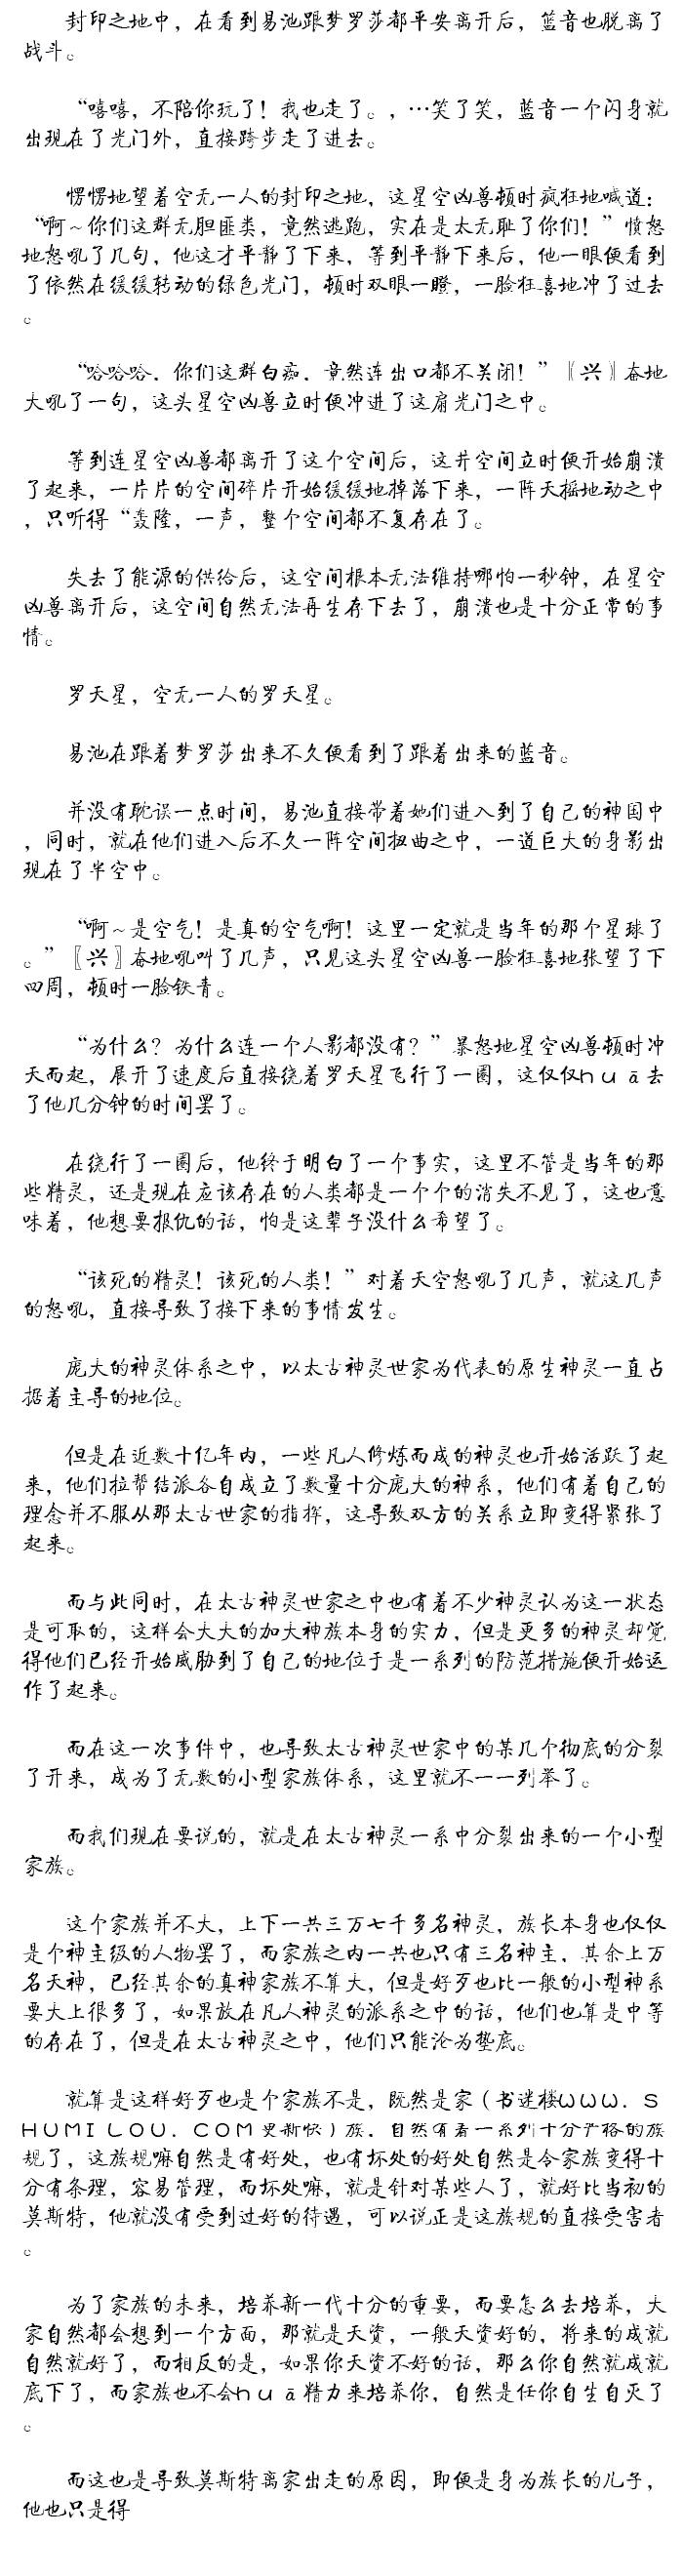 封印之地中，在看到易池跟梦罗莎都平安离开后，蓝音也脱离了
战斗。
“嘻嘻，不陪你玩了！我也走了。，…笑了笑，蓝音一个闪身就
出现在了光门外，直接跨步走了进去。
愣愣地望着空无一人的封印之地，这星空凶兽顿时疯狂地喊道：
“啊～你们这群无胆匪类，竟然逃跑，实在是太无耻了你们！”愤怒
地怒吼了几句，他这才平静了下来，等到平静下来后，他一眼便看到
了依然在缓缓转动的绿色光门，顿时双眼一瞪，一脸狂喜地冲了过去
。
“哈哈哈，你们这群白痴，竟然连出口都不关闭！”〖兴〗奋地
大吼了一句，这头星空凶兽立时便冲进了这扇光门之中。
等到连星空凶兽都离开了这个空间后，这井空间立时便开始崩溃
了起来，一片片的空间碎片开始缓缓地掉落下来，一阵天摇地动之中
，只听得“轰隆，一声，整个空间都不复存在了。
失去了能源的供给后，这空间根本无法维持哪怕一秒钟，在星空
凶兽离开后，这空间自然无法再生存下去了，崩溃也是十分正常的事
情。
罗天星，空无一人的罗天星。
易池在跟着梦罗莎出来不久便看到了跟着出来的蓝音。
并没有耽误一点时间，易池直接带着她们进入到了自己的神国中
，同时，就在他们进入后不久一阵空间扭曲之中，一道巨大的身影出
现在了半空中。
“啊～是空气！是真的空气啊！这里一定就是当年的那个星球了
。”〖兴〗奋地吼叫了几声，只见这头星空凶兽一脸狂喜地张望了下
四周，顿时一脸铁青。
“为什么？为什么连一个人影都没有？”暴怒地星空凶兽顿时冲
天而起，展开了速度后直接绕着罗天星飞行了一圈，这仅仅ｈｕā去
了他几分钟的时间罢了。
在绕行了一圈后，他终于明白了一个事实，这里不管是当年的那
些精灵，还是现在应该存在的人类都是一个个的消失不见了，这也意
味着，他想要报仇的话，怕是这辈子没什么希望了。
“该死的精灵！该死的人类！”对着天空怒吼了几声，就这几声
的怒吼，直接导致了接下来的事情发生。
庞大的神灵体系之中，以太古神灵世家为代表的原生神灵一直占
据着主导的地位。
但是在近数十亿年内，一些凡人修炼而成的神灵也开始活跃了起
来，他们拉帮结派各自成立了数量十分庞大的神系，他们有着自己的
理念并不服从那太古世家的指挥，这导致双方的关系立即变得紧张了
起来。
而与此同时，在太古神灵世家之中也有着不少神灵认为这一状态
是可取的，这样会大大的加大神族本身的实力，但是更多的神灵却觉
得他们已经开始威胁到了自己的地位于是一系列的防范措施便开始运
作了起来。
而在这一次事件中，也导致太古神灵世家中的某几个彻底的分裂
了开来，成为了无数的小型家族体系，这里就不一一列举了。
而我们现在要说的，就是在太古神灵一系中分裂出来的一个小型
家族。
这个家族并不大，上下一共三万七千多名神灵，族长本身也仅仅
是个神主级的人物罢了，而家族之内一共也只有三名神主，其余上万
名天神，已经其余的真神家族不算大，但是好歹也比一般的小型神系
要大上很多了，如果放在凡人神灵的派系之中的话，他们也算是中等
的存在了，但是在太古神灵之中，他们只能沦为垫底。
就算是这样好歹也是个家族不是，既然是家（书迷楼ｗｗｗ．Ｓ
ＨＵＭＩＬＯＵ．ＣＯＭ更新快）族，自然有着一系列十分严格的族
规了，这族规嘛自然是有好处，也有坏处的好处自然是令家族变得十
分有条理，容易管理，而坏处嘛，就是针对某些人了，就好比当初的
莫斯特，他就没有受到过好的待遇，可以说正是这族规的直接受害者
。
为了家族的未来，培养新一代十分的重要，而要怎么去培养，大
家自然都会想到一个方面，那就是天资，一般天资好的，将来的成就
自然就好了，而相反的是，如果你天资不好的话，那么你自然就成就
底下了，而家族也不会ｈｕā精力来培养你，自然是任你自生自灭了
。
而这也是导致莫斯特离家出走的原因，即便是身为族长的儿子，
他也只是得